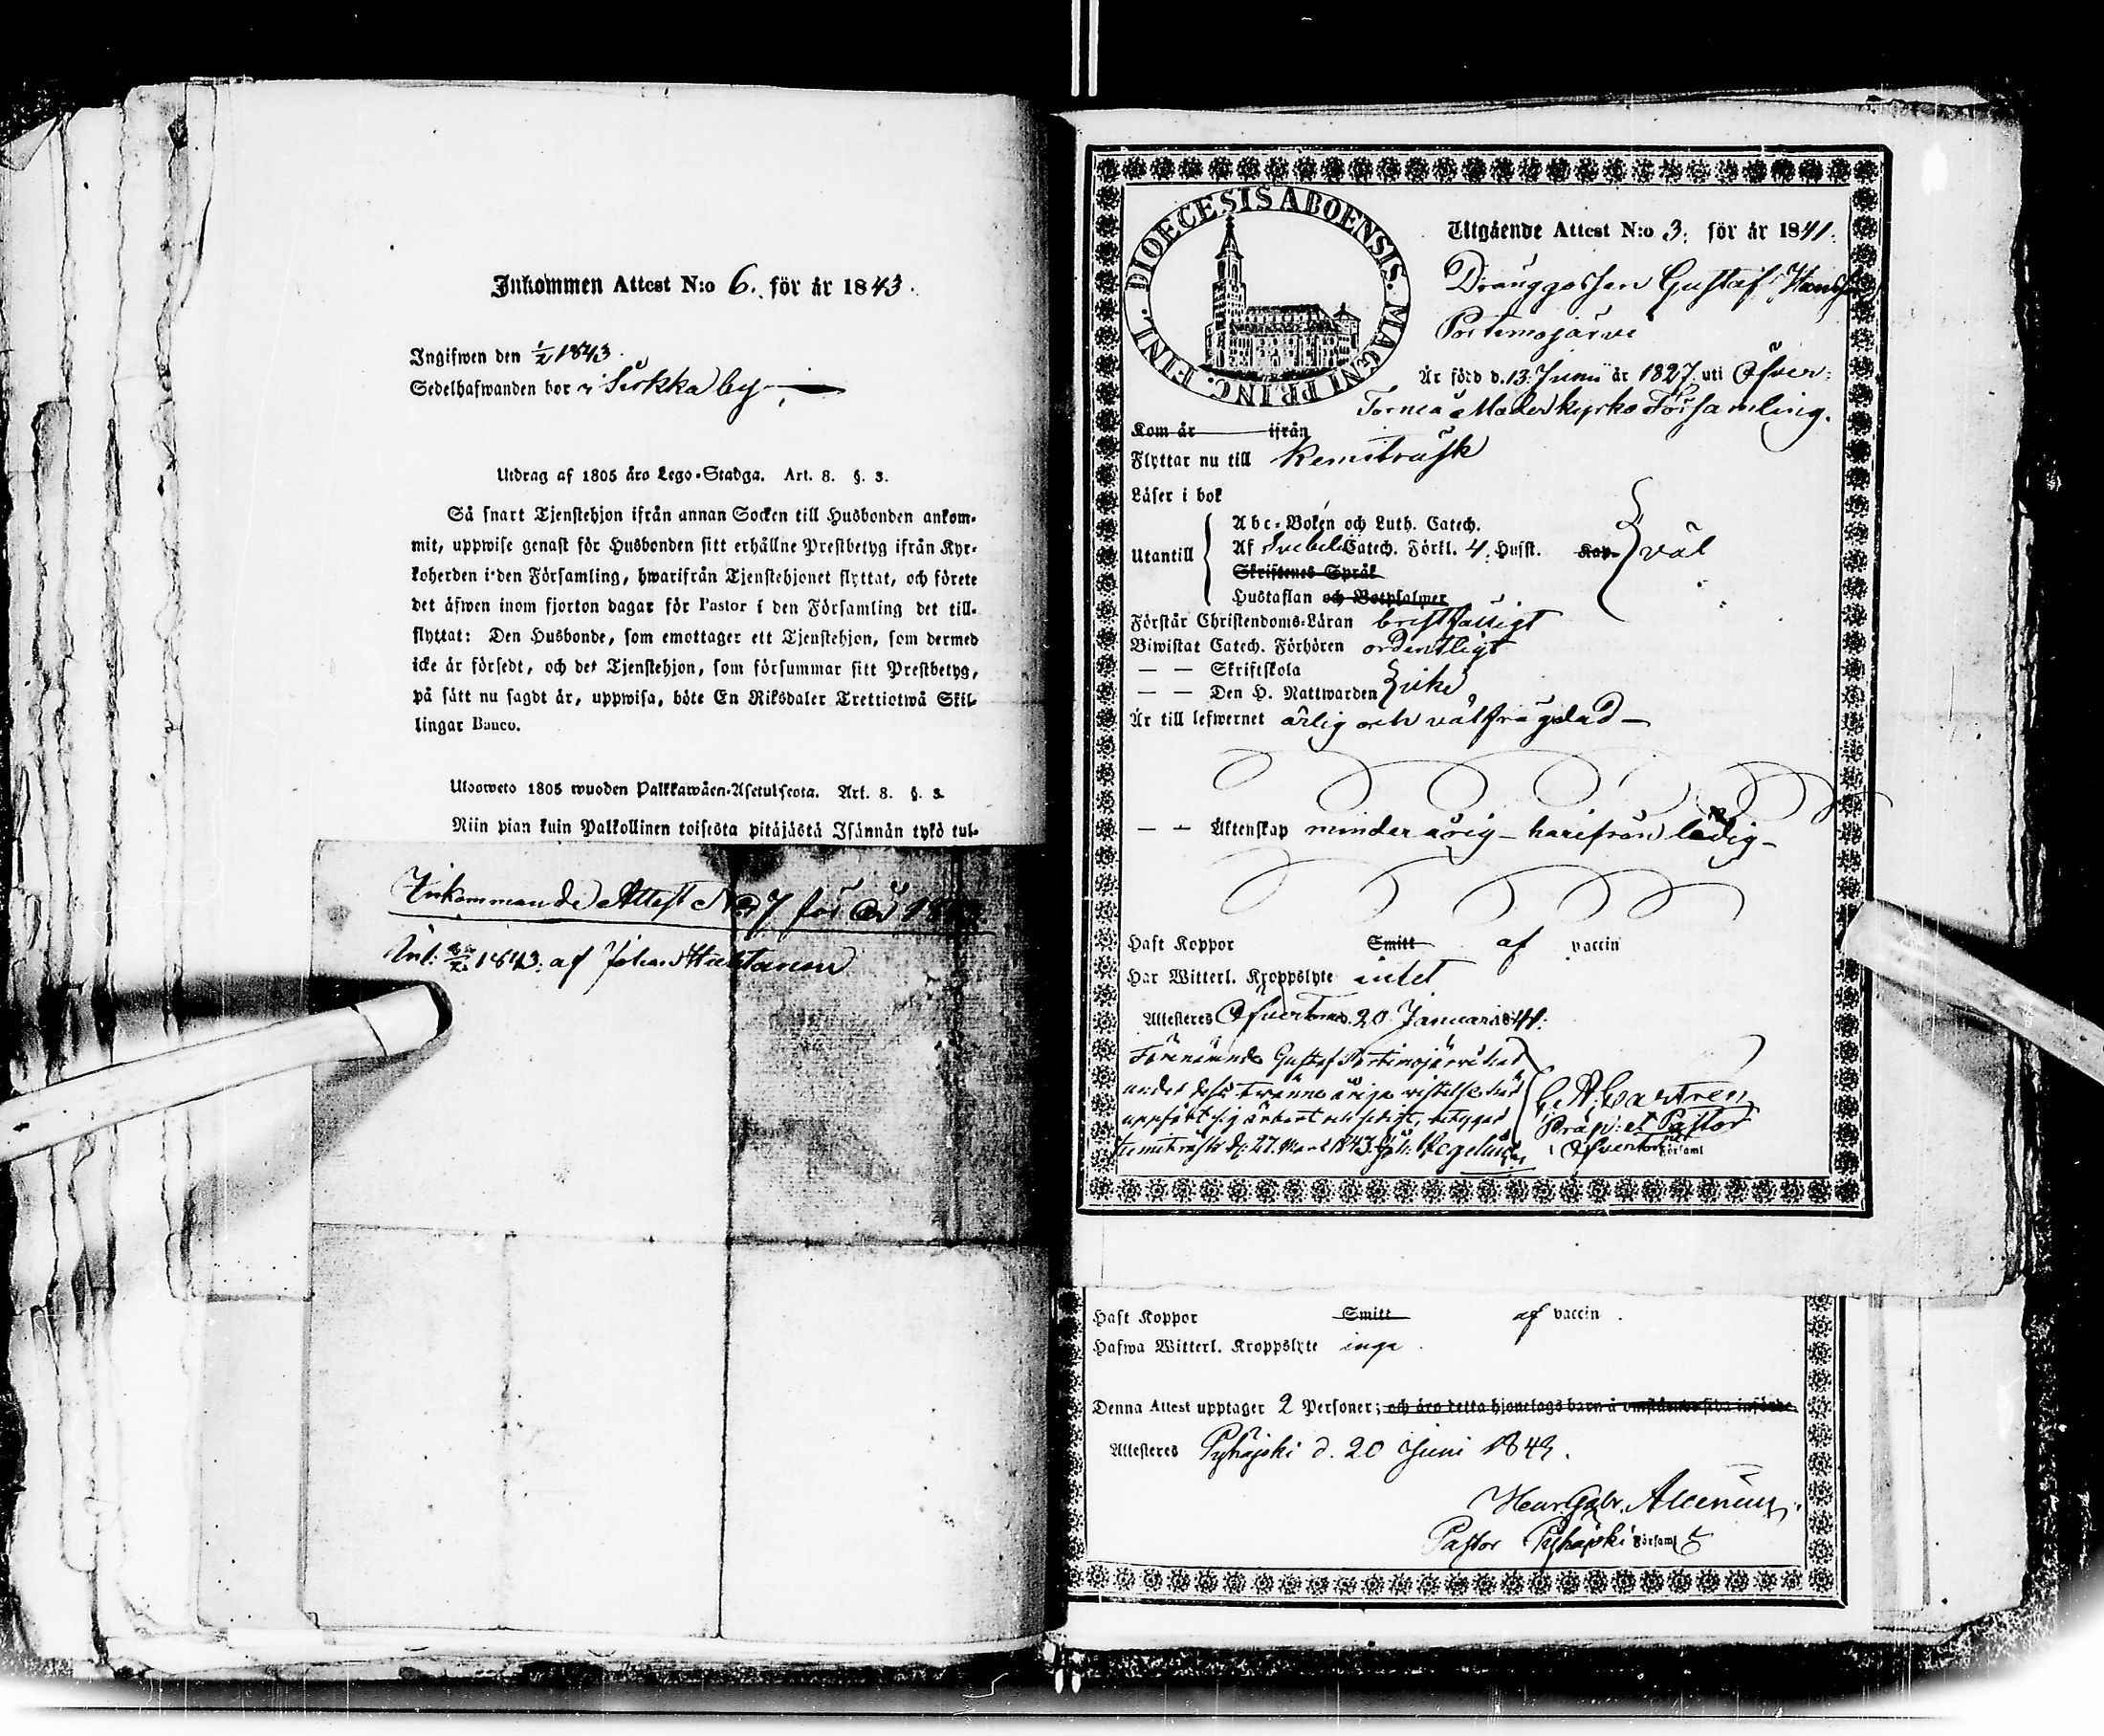 Inkommen Attest N:o 6. för år 1843.
Ingifwen den ½ 1843.
Sedelhafwanden bor i Sirkka by
Utdrag af 1805 års Lego-Stadga. Art. 8. §. 3.
Så snart Tjenstehjon ifrån annan Socken till Husbonden ankom-
mit, uppwise genast för Husbonden sitt erhållne Prestbetyg ifrån Kyr-
koherden i den Församling, hwarifrån Tjenstehjonet flyttat, och förete
det äfwen inom fjorton dagar för Pastor i den Församling det till-
flyttat: Den Husbonde, som emottager ett Tjenstehjon, som dermed
icke är försedt, och det Tjenstehjon, som försummar sitt Prestbetyg,
på sätt nu sagdt är, uppwisa, böte En Riksdaler Trettiotwå Skil-
lingar Banco.
Ulosweto 1805 wuoden Palkkawäen-Asetuksesta. Art. 8. §. 3.
Niin pian kuin Palkollinen toisesta pitäjästä Isännän tykö tul-
Inkommande Attest No 7 för år
1843. af Johan
DIOECESIS ABOENSIS. MAGNI PRINC. FINL.
Utgående Attest N:o 3. för år 1841.
Dränggossen Gustaf
Portimojärvi
Är född d. 13. Junii år 1827. uti Öfver-
Torneå Moderkyrko Församling.
Kom år ifrån
Flyttar nu till Kemiträsk
Läser i bok
Utantill
Abc-Boken och Luth. Catech.
Af Svebelii Catech. Förkl. 4. Hufst. Kap. väl
Skriftenes Språk
Hustaflan och Botpsalmer
Förstår Christendoms-Läran bristfälligt
Biwistat Catech. Förhören ordentligt
— — Skriftskola
— — Den H. Nattwarden icke
Är till lefwernet ärlig och välfrägdad —
— — Äktenskap minderårig — härifrån ledig —
Haft Koppor Smitt af vaccin
Har Witterl. Kroppslyte intet
Attesteres Öfvertorneå d. 20 Januari 1841.
Förenämnde Gustaf Portimojärvi har
under dess tvenne åriga vistelse här
uppfört sig ärbart och
Kemiträsk d. 27. Mars 1843.
C. A. Castrén
Præp: et Pastor
i Öfvertorneå Församl
Haft Koppor Smitt af vaccin.
Hafwa Witterl. Kroppslyte inga.
Denna Attest upptager 2 Personer; och äro detta hjonelags barn å omstående sida införde.
Attesteres Pyhäjoki d. 20 Juni 1843.
Henr. Gabr. Alcenius.
Pastor Pyhäjoki Församl